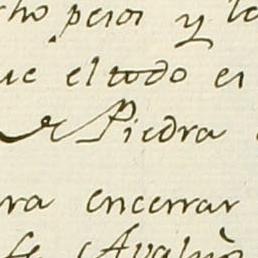 cho pesos y
que el todo es
de Piedra
ra encerrar
se Avaluò